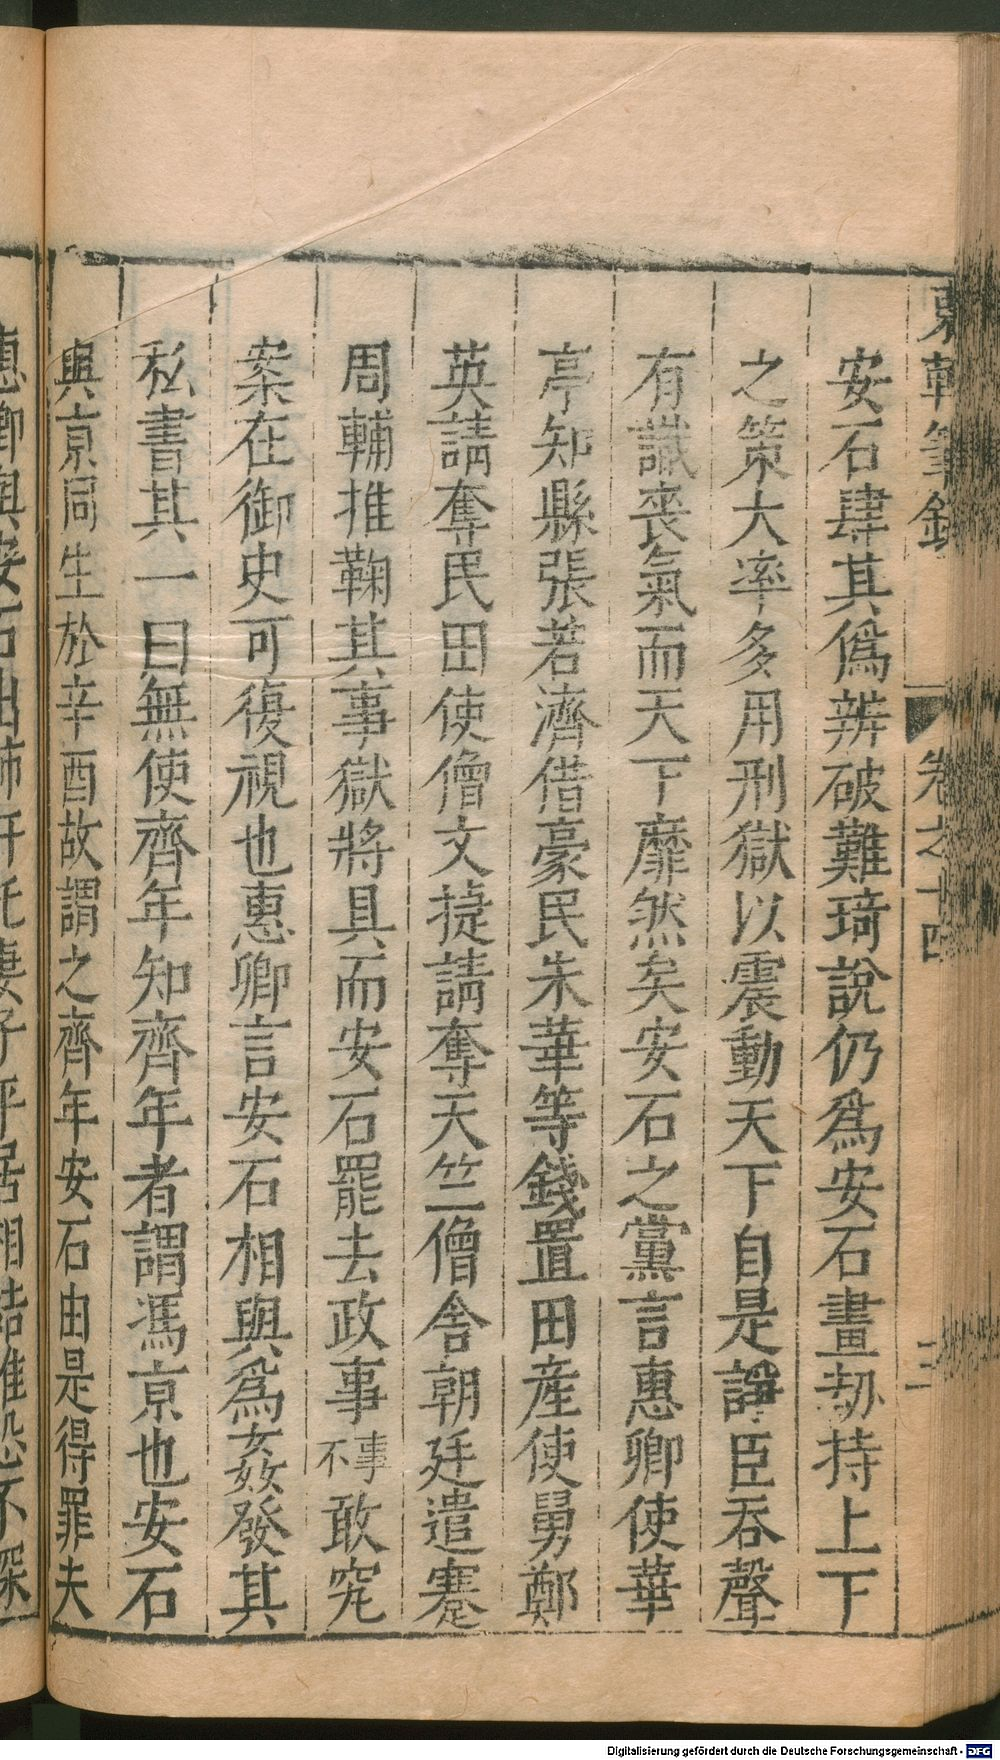 東軒筆錄 卷之十四
安石肆其僞辨破難琦說仍爲安石畫劫持上下
之策大率多用刑獄以震動天下自是諍臣吞聲
有識喪氣而天下靡然矣安石之黨言惠卿使華
亭知縣張若濟借豪民朱華等錢置田産使舅鄭
英請奪民田使僧文捷請奪天竺僧舍朝廷遣蹇
周輔推鞠其事獄將具而安石罷去政事事不敢究
案在御史可復視也惠卿言安石相與爲姦發其
私書其一曰無使齊年知齊年者謂馮京也安石
與京同生於辛酉故謂之齊年安石由是得罪夫
惠卿與安石出肺肝託妻子平居相結惟恐不深
Digitalisierung gefördert durch die Deutsche Forschungsgemeinschaft - DFG